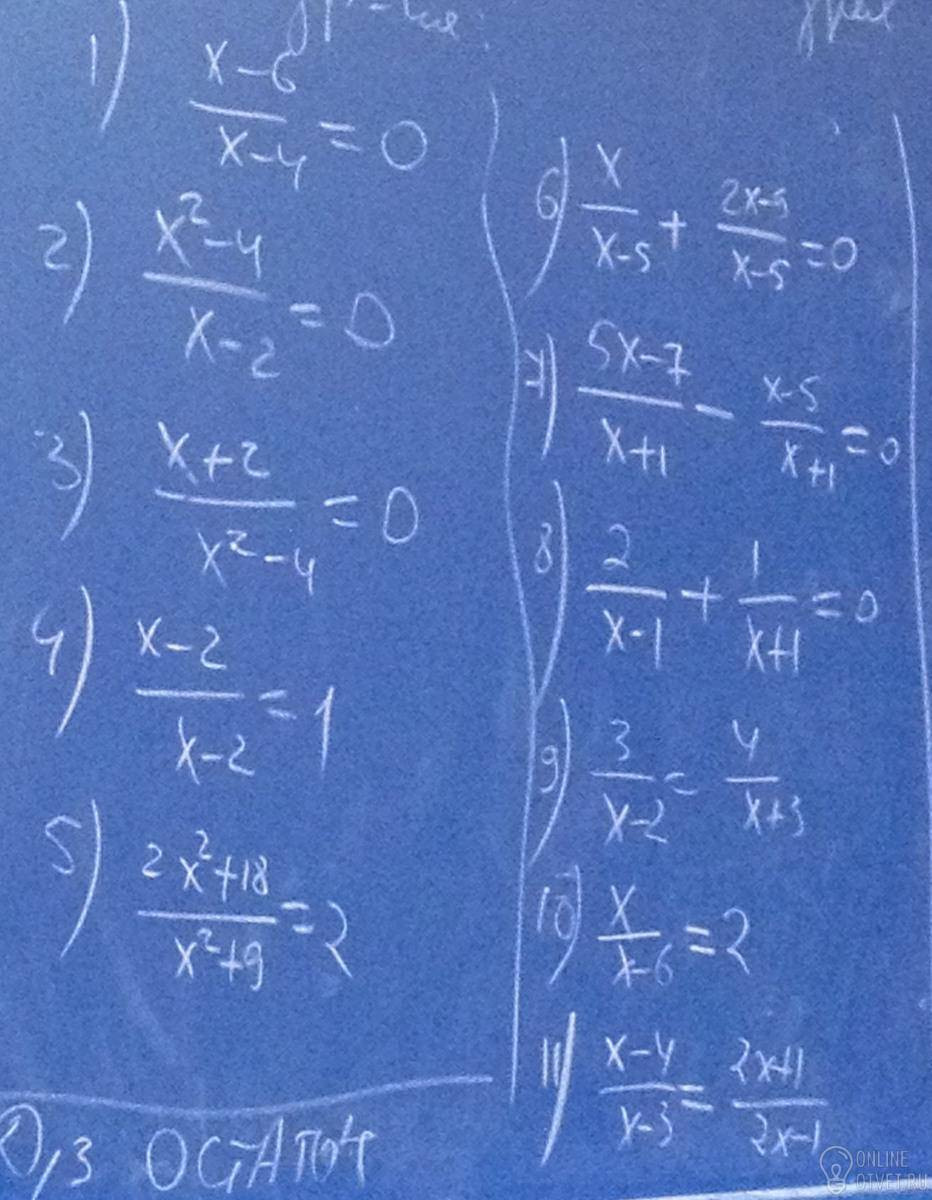 1) (x-6)/(x-4) = 0
2) (x²-4)/(x-2) = 0
3) (x+2)/(x²-4) = 0
4) (x-2)/(x-2) = 1
5) (2x²+18)/(x²+9) = 2
ОСТАТОК
6) x/(x-5) + (2x-5)/(x-5) = 0
7) (5x-7)/(x+1) - (x-5)/(x+1) = 0
8) 2/(x-1) + 1/(x+1) = 0
9) 3/(x-2) = 4/(x+3)
10) x/(x-6) = 2
11) (x-4)/(x-3) = (2x+1)/(2x-1)
ONLINE
OTVET.RU